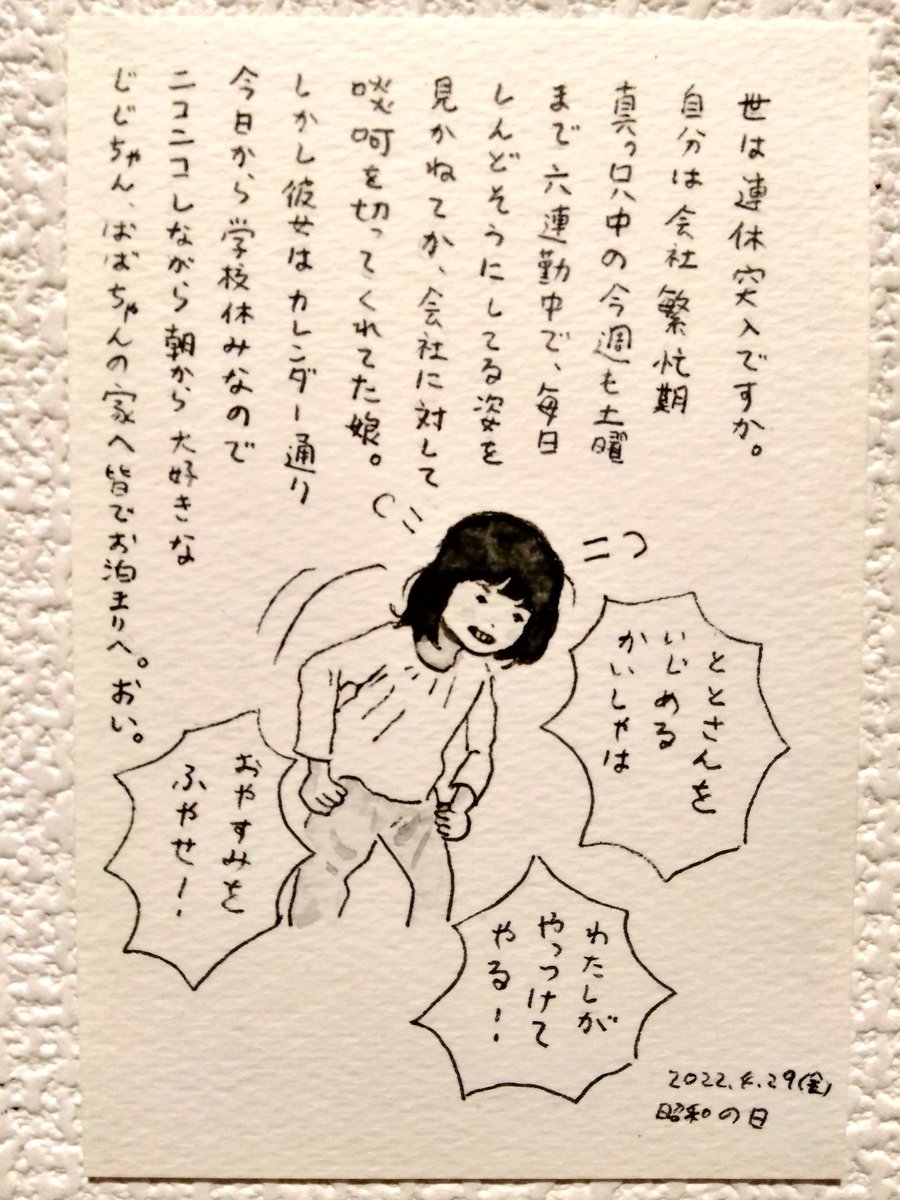 世は連休突入ですか。
自分は会社繁忙期
真っ只中の今週も土曜
まで六連勤中で、毎日
しんどそうにしてる姿を
見かねてか、会社に対して
啖呵を切ってくれてた娘。
しかし彼女はカレンダー通り
今日から学校休みなので
ニコニコしながら朝から大好きな
じじちゃん、ばばちゃんの家へ皆でお泊まりへ。おい。
ととさんを
いじめる
かいしゃは
わたしが
やっつけて
やる！
おやすみを
ふやせ！
2022.4.29(金)
昭和の日